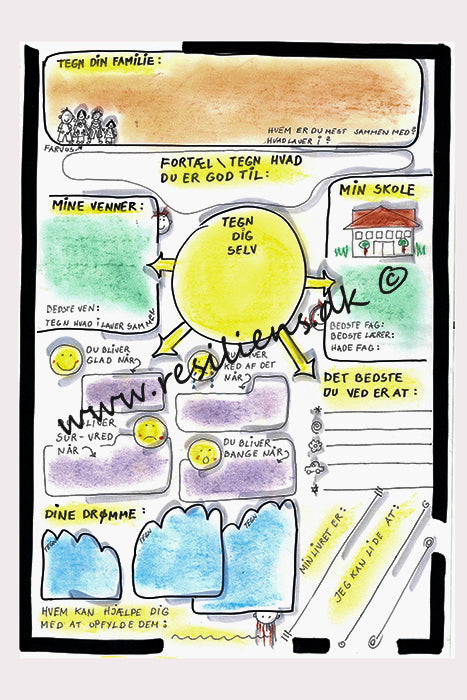 TEGN DIN FAMILIE:
HVEM ER DU MEST SAMMEN MED?
HVAD LAVER I?
FARVOS
FORTÆL \ TEGN HVAD
DU ER GOD TIL:
MINE VENNER:
BEDSTE VEN:
TEGN HVAD I LAVER SAMMEN
TEGN
DIG
SELV
MIN SKOLE
BEDSTE FAG:
BEDSTE LÆRER:
HADE FAG:
www.resiliens.dk ©
DU BLIVER
GLAD NÅR
DU BLIVER
KED AF DET
NÅR
BLIVER
SUR-VRED
NÅR
DU BLIVER
BANGE NÅR
DET BEDSTE
DU VED ER AT:
DINE DRØMME:
TEGN
TEGN
TEGN
HVEM KAN HJÆLPE DIG
MED AT OPFYLDE DEM:
MIN LIVRET ER:
JEG KAN LIDE AT: